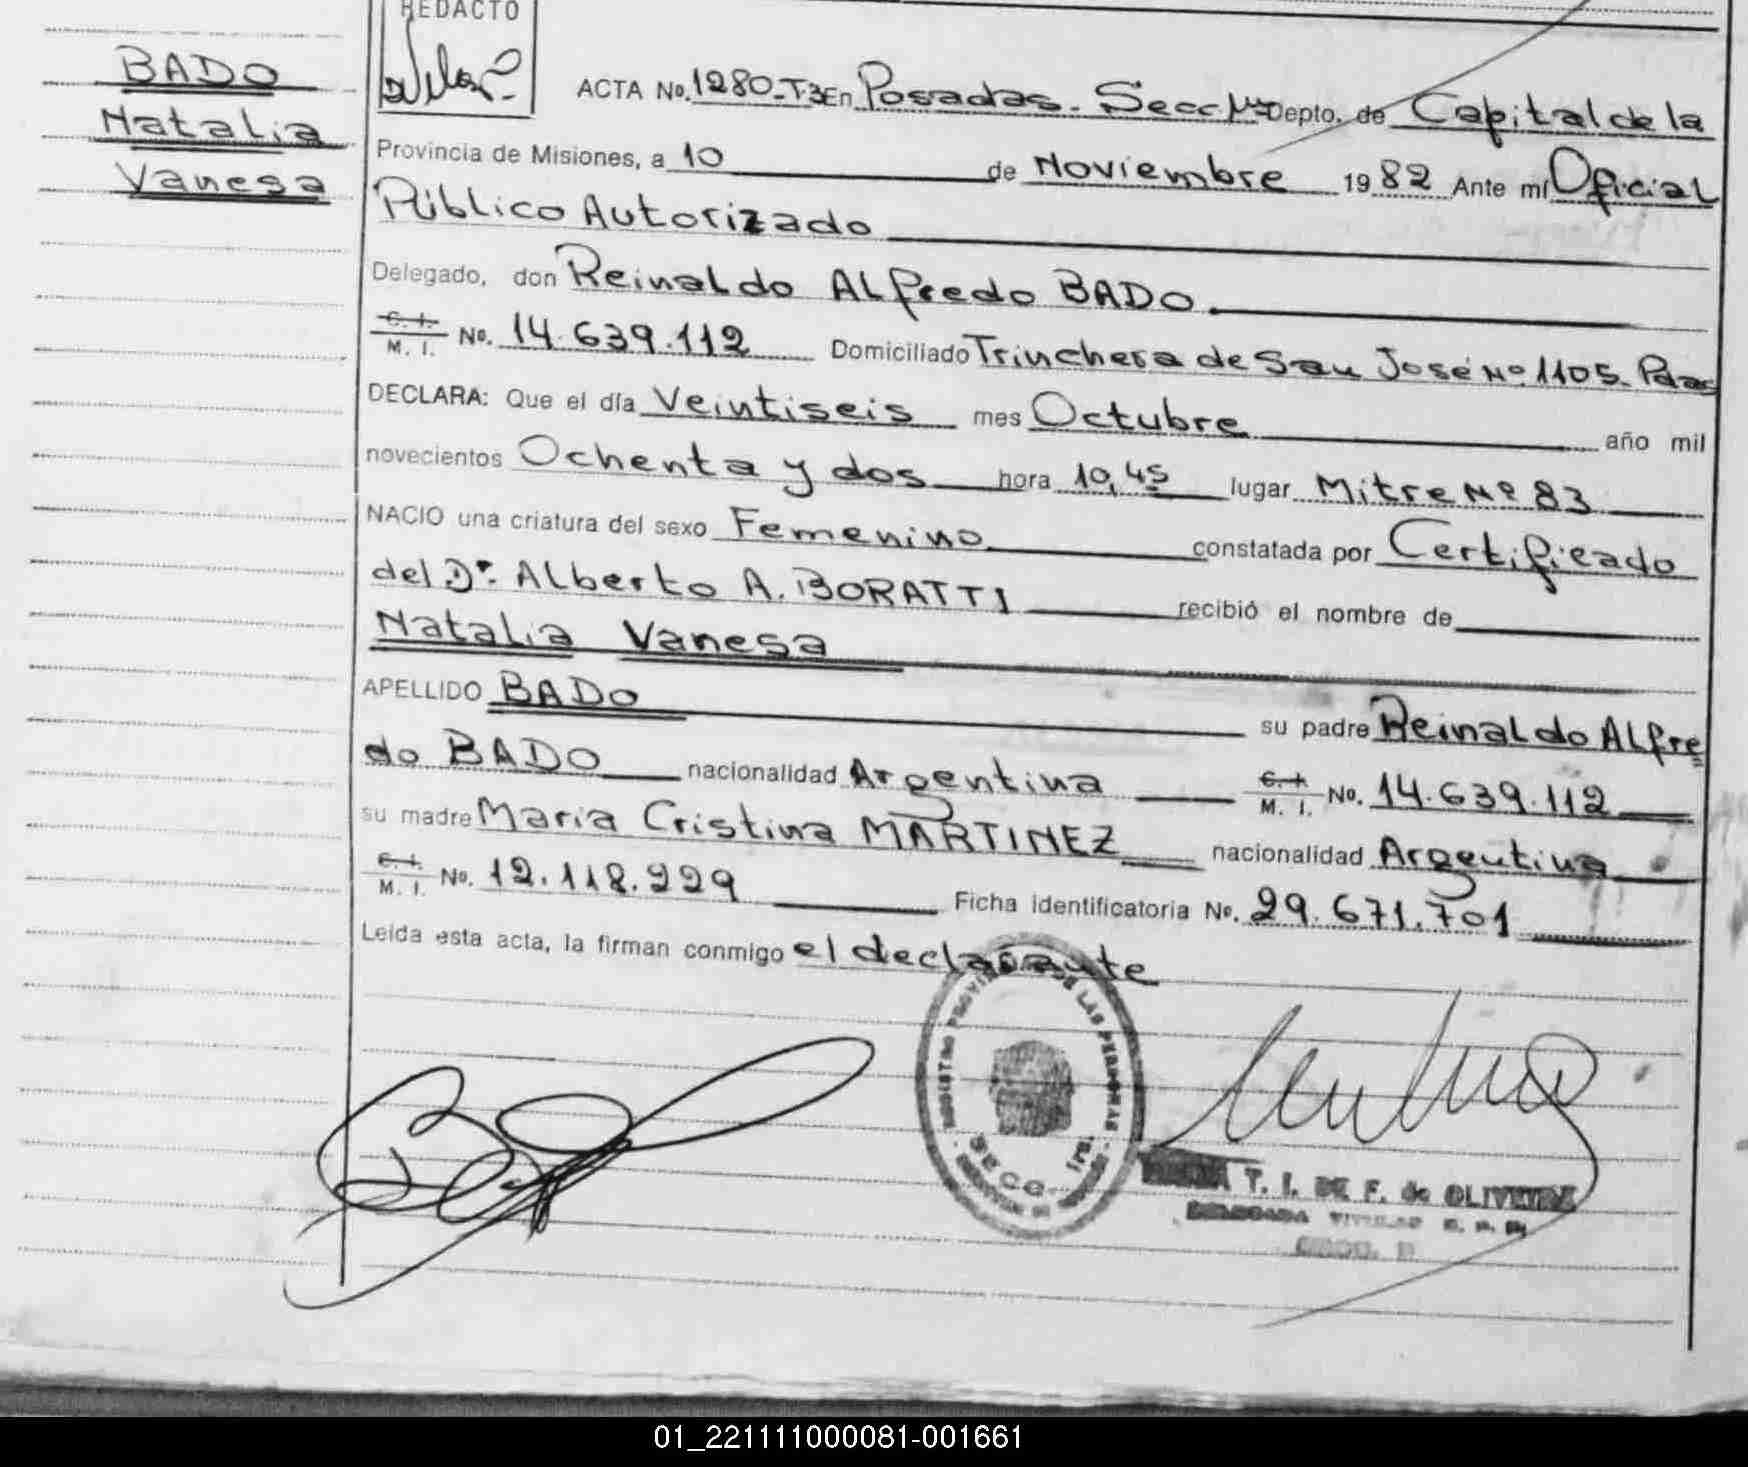 BADO
Natalia
Vanesa
REDACTO
ACTA No. 1280-T.3 En Posadas. Secc 1ra Depto. de Capital de la
Provincia de Misiones, a 10 de Noviembre 1982 Ante mí Oficial
Público Autorizado
Delegado, don Reinaldo ALfredo BADO.
C. I.
M. I. No. 14.639.112 Domiciliado Trinchera de San José No 1105. Pdas
DECLARA: Que el día Veintiseis mes Octubre año mil
novecientos Ochenta y dos hora 10,45 lugar Mitre No 83
NACIO una criatura del sexo Femenino constatada por Certificado
del Dr. Alberto A. BORATTI recibió el nombre de
Natalia Vanesa
APELLIDO BADO su padre Reinaldo ALfre
do BADO nacionalidad Argentina C. I. M. I. No. 14.639.112
su madre Maria Cristina MARTINEZ nacionalidad Argentina
C. I.
M. I. No. 12.118.229 Ficha identificatoria No. 29.671.701
Leída esta acta, la firman conmigo el declarante
REGISTRO DE LAS PERSONAS
SECC. 1ra.
T. I. DE F. de OLIVEIRA
01_221111000081-001661